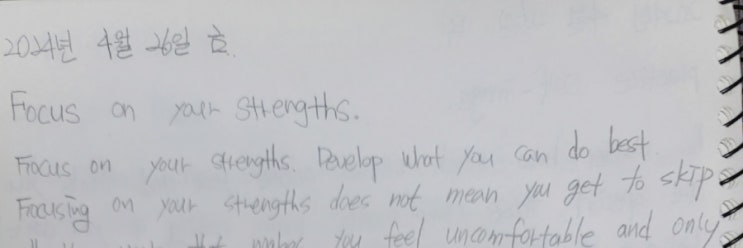 2024년 4월 26일 금.
Focus on your strengths.
Focus on your strengths. Develop what you can do best.
Focusing on your strengths does not mean you get to skip
that makes you feel uncomfortable and only